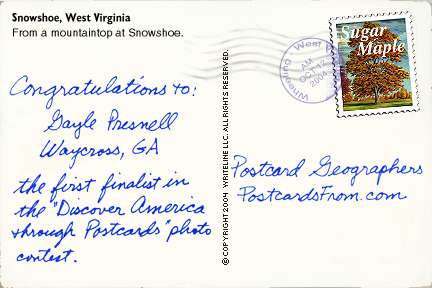 Snowshoe, West Virginia
From a mountaintop at Snowshoe.
Congratulations to:
Gayle Presnell
Waycross, GA
the first finalist in
the "Discover America
through Postcards" photo
contest.
© COPYRIGHT 2004 WRITELINE LLC. ALL RIGHTS RESERVED.
West
AM
OCT
2004
Sugar
Maple
Postcard Geographers
PostcardsFrom.com